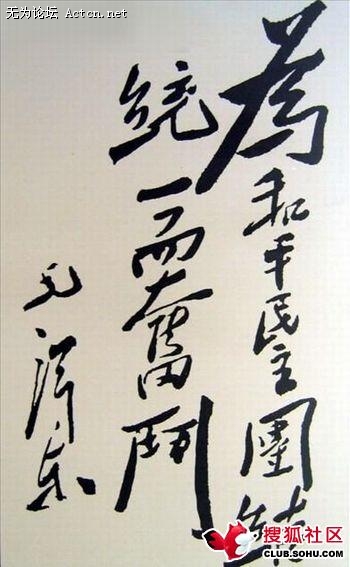 无为论坛 Actcn.net
為和平民主團結
統一而奮鬥
毛澤東
搜狐社区
CLUB.SOHU.COM